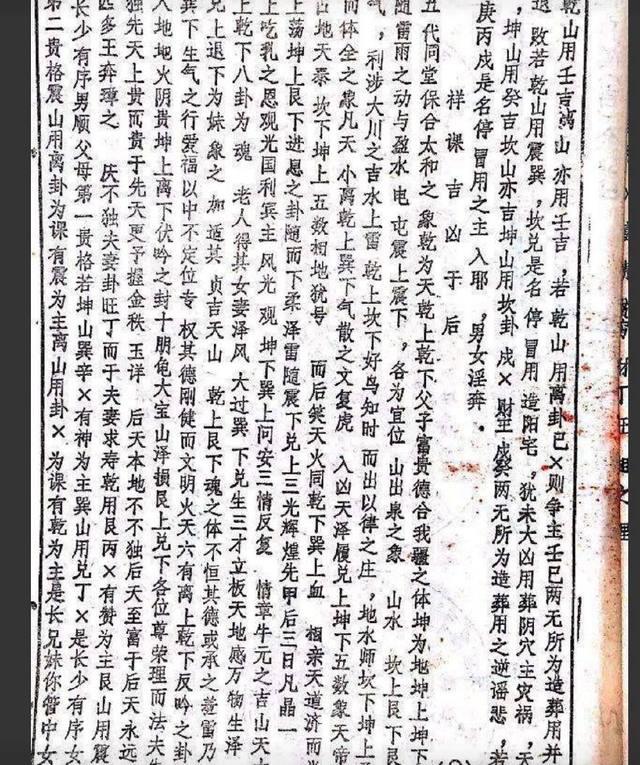 乾山用壬吉离山亦用壬吉，若乾山用离卦已×则争主壬已两无所为造葬用并
退败若乾山用震巽，坎兑是名停冒用造阳宅，犹未大凶用葬阴穴主灾祸，天
，坤山用癸吉坎山亦吉坤山用坎卦戌×财王戌癸两无所为造葬用之逆谣悲，若
庚丙戌是名停冒用之主入耶，男女淫奔。
祥课吉凶于后
五代同堂保合太和之象乾为天乾上乾下父子富贵德合我疆之体坤为地坤上坤下
随雷雨之动与盈水电屯震上震下，各为宜位山出泉之象山水坎上艮下艮
气，利涉大川之吉水上雷乾上坎下好鸟知时而出以律之庄，地水师坎下坤上
而体全之象凡天小离乾上巽下气散之文复虎入凶天泽履兑上坤下五数象天帝
白地天泰坎下坤上五数相地犹号而后笑天火同乾下巽上血相亲天道济而光
上荡坤上艮下进息之卦随而下柔泽雷随震下兑上三光辉煌先甲后三日凡晶一
上吃乳之恩观光国利宾主风光观坤下巽上问安三情反复情章牛元之吉山天大
上乾下八卦为魂老人得其女妻泽风大过巽下兑生三才立板天地感万物生泽
兑上退下为妹象之加道其贞吉天山乾上艮下魂之体不恒其德或承之意雷乃
巽下生气之行爱福以中不定位专权其德刚健而文明火天六有离上乾下反吟之卦
人地地火阴贵坤上离下伏吟之封十朋龟大宝山泽损艮上兑下各位尊荣理而法夫生
独先天上贵而贵于先天更予握金秩玉详后天本地不不独后天至富于后天永远
匹多王弃璋之庆不独夫妻卦旺丁而于夫妻求寿乾用艮丙×有赞为主艮山用震
长少有序男顺父母第一贵格若坤山巽辛×有神为主巽山用兑丁×是长少有序女
第二贵格震山用离卦为课有震为主离山用卦×为课有乾为主是长兄妹你管中女